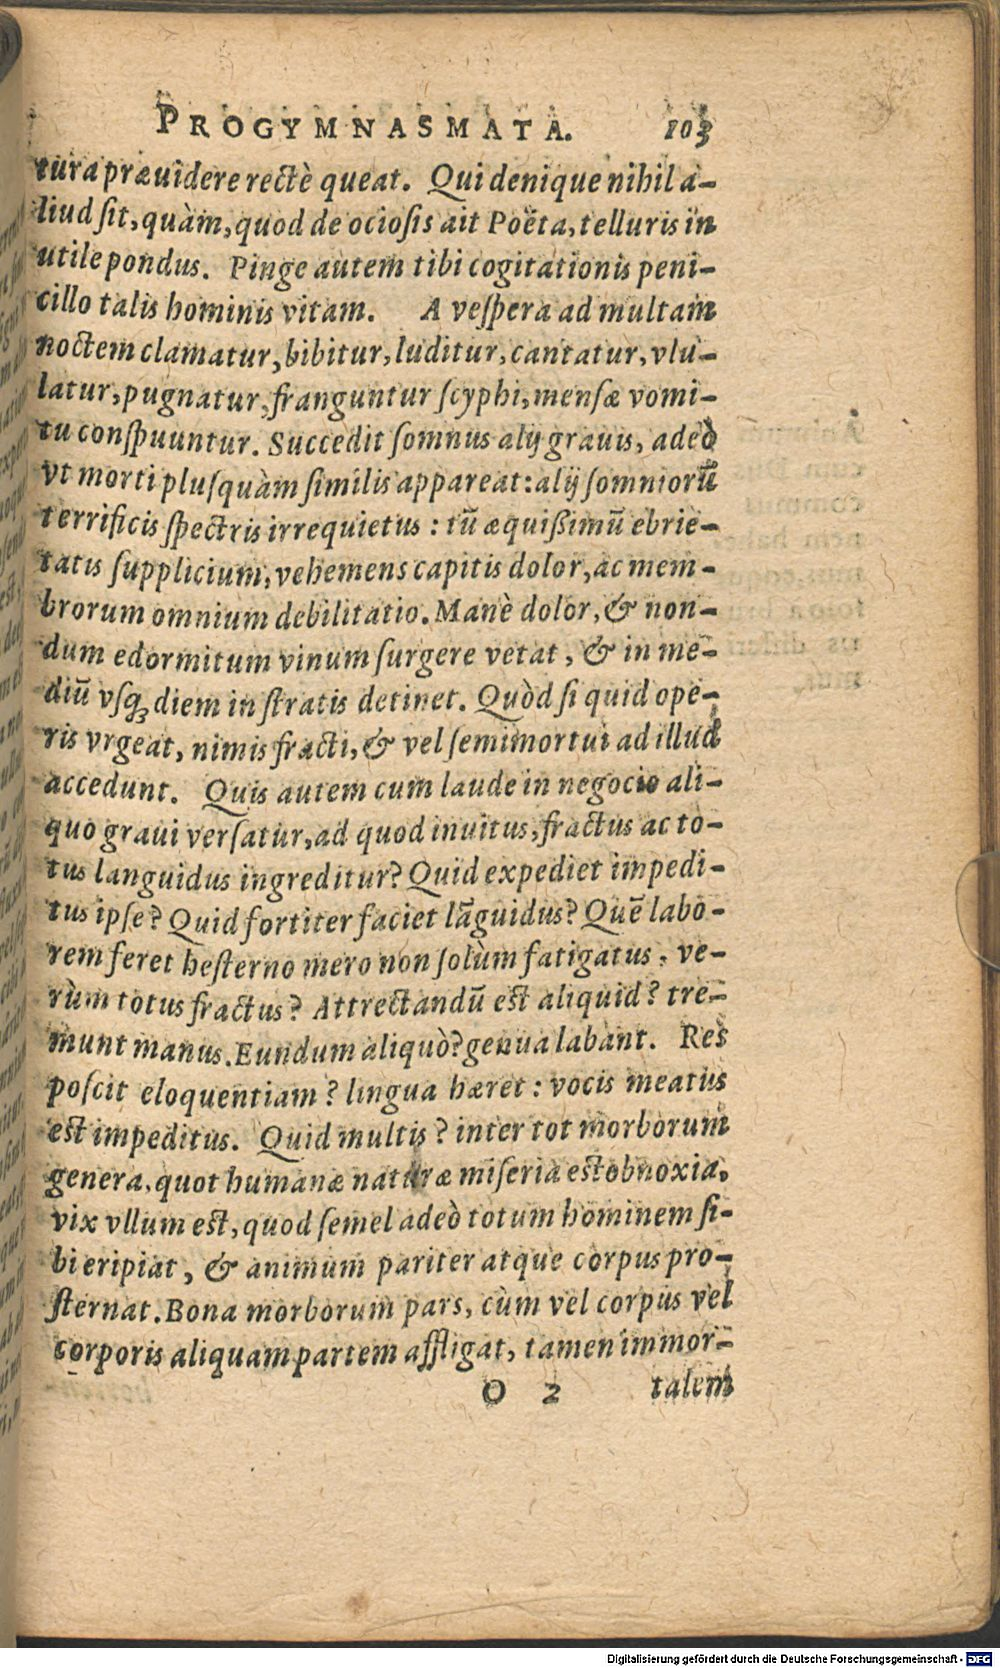 PROGYMNASMATA. 103
tura præuidere rectè queat. Qui denique nihil a-
liud sit, quàm, quod de ociosis ait Poëta, telluris in
utile pondus. Pinge autem tibi cogitationis peni-
cillo talis hominis vitam. A vespera ad multam
noctem clamatur, bibitur, luditur, cantatur, vlu-
latur, pugnatur, franguntur scyphi, mensæ vomi-
tu conspuuntur. Succedit somnus alij grauis, adeò
vt morti plusquàm similis appareat: alij somniorũ
terrificis spectris irrequietus: tũ æquißimũ ebrie-
tatis supplicium, vehemens capitis dolor, ac mem-
brorum omnium debilitatio. Manè dolor, & non-
dum edormitum vinum surgere vetat, & in me-
diũ vsq; diem in stratis detinet. Quòd si quid ope-
ris vrgeat, nimis fracti, & vel semimortui ad illud
accedunt. Quis autem cum laude in negocio ali-
quo graui versatur, ad quod inuitus, fractus ac to-
tus languidus ingreditur? Quid expediet impedi-
tus ipse? Quid fortiter faciet lãguidus? Quẽ labo-
rem feret hesterno mero non solùm fatigatus, ve-
rùm totus fractus? Attrectandũ est aliquid? tre-
munt manus. Eundum aliquò? genua labant. Res
poscit eloquentiam? lingua hæret: vocis meatus
est impeditus. Quid multis? inter tot morborum
genera, quot humanæ naturæ miseria est obnoxia,
vix vllum est, quod semel adeò totum hominem si-
bi eripiat, & animum pariter atque corpus pro-
sternat. Bona morborum pars, cùm vel corpus vel
corporis aliquam partem affligat, tamen immor-
O 2 talem
Digitalisierung gefördert durch die Deutsche Forschungsgemeinschaft - DFG